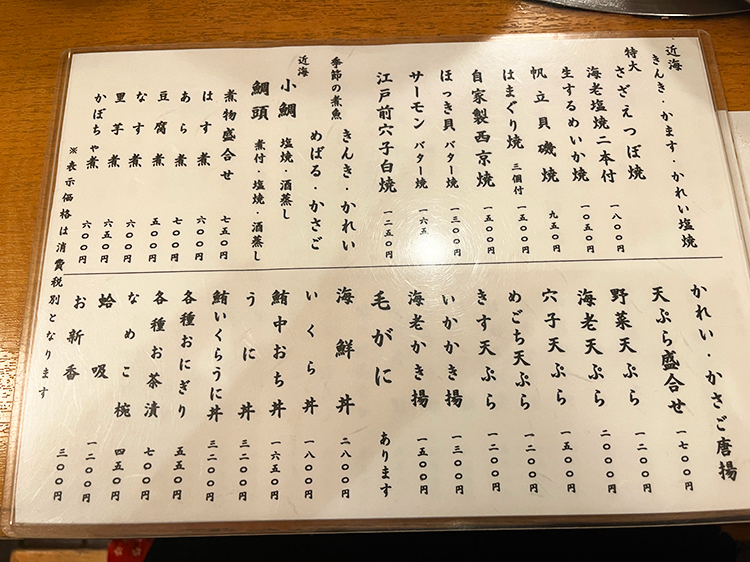 近海 きんき・かます・かれい塩焼
特大 さざえつぼ焼
海老塩焼二本付 一八〇〇円
生するめいか焼 一〇五〇円
帆立貝磯焼 九五〇円
はまぐり焼 三個付 一五〇〇円
自家製西京焼 一五〇〇円
ほっき貝 バター焼 一三〇〇円
サーモン バター焼 一六五
江戸前穴子白焼 一二五〇円
季節の煮魚 きんき・かれい
めばる・かさご
近海 小鯛 塩焼・酒蒸し
鯛頭 煮付・塩焼・酒蒸し
煮物盛合せ 七五〇円
はす煮 六〇〇円
あら煮 七〇〇円
豆腐煮 五〇〇円
なす煮 六〇〇円
里芋煮 六五〇円
かぼちゃ煮 六〇〇円
※表示価格は消費税別となります
かれい・かさご唐揚
天ぷら盛合せ 一七〇〇円
野菜天ぷら 一二〇〇円
海老天ぷら 二〇〇〇円
穴子天ぷら 一五〇〇円
めごち天ぷら 一二〇〇円
きす天ぷら 一二〇〇円
いかかき揚 一三〇〇円
海老かき揚 一五〇〇円
毛がに あります
海鮮丼 二八〇〇円
いくら丼 一八〇〇円
鮪中おち丼 一六五〇円
うに丼 三二〇〇円
鮪いくらうに丼 三二〇〇円
各種おにぎり 五五〇円
各種お茶漬 七〇〇円
なめこ椀 四五〇円
蛤吸 一二〇〇円
お新香 三〇〇円